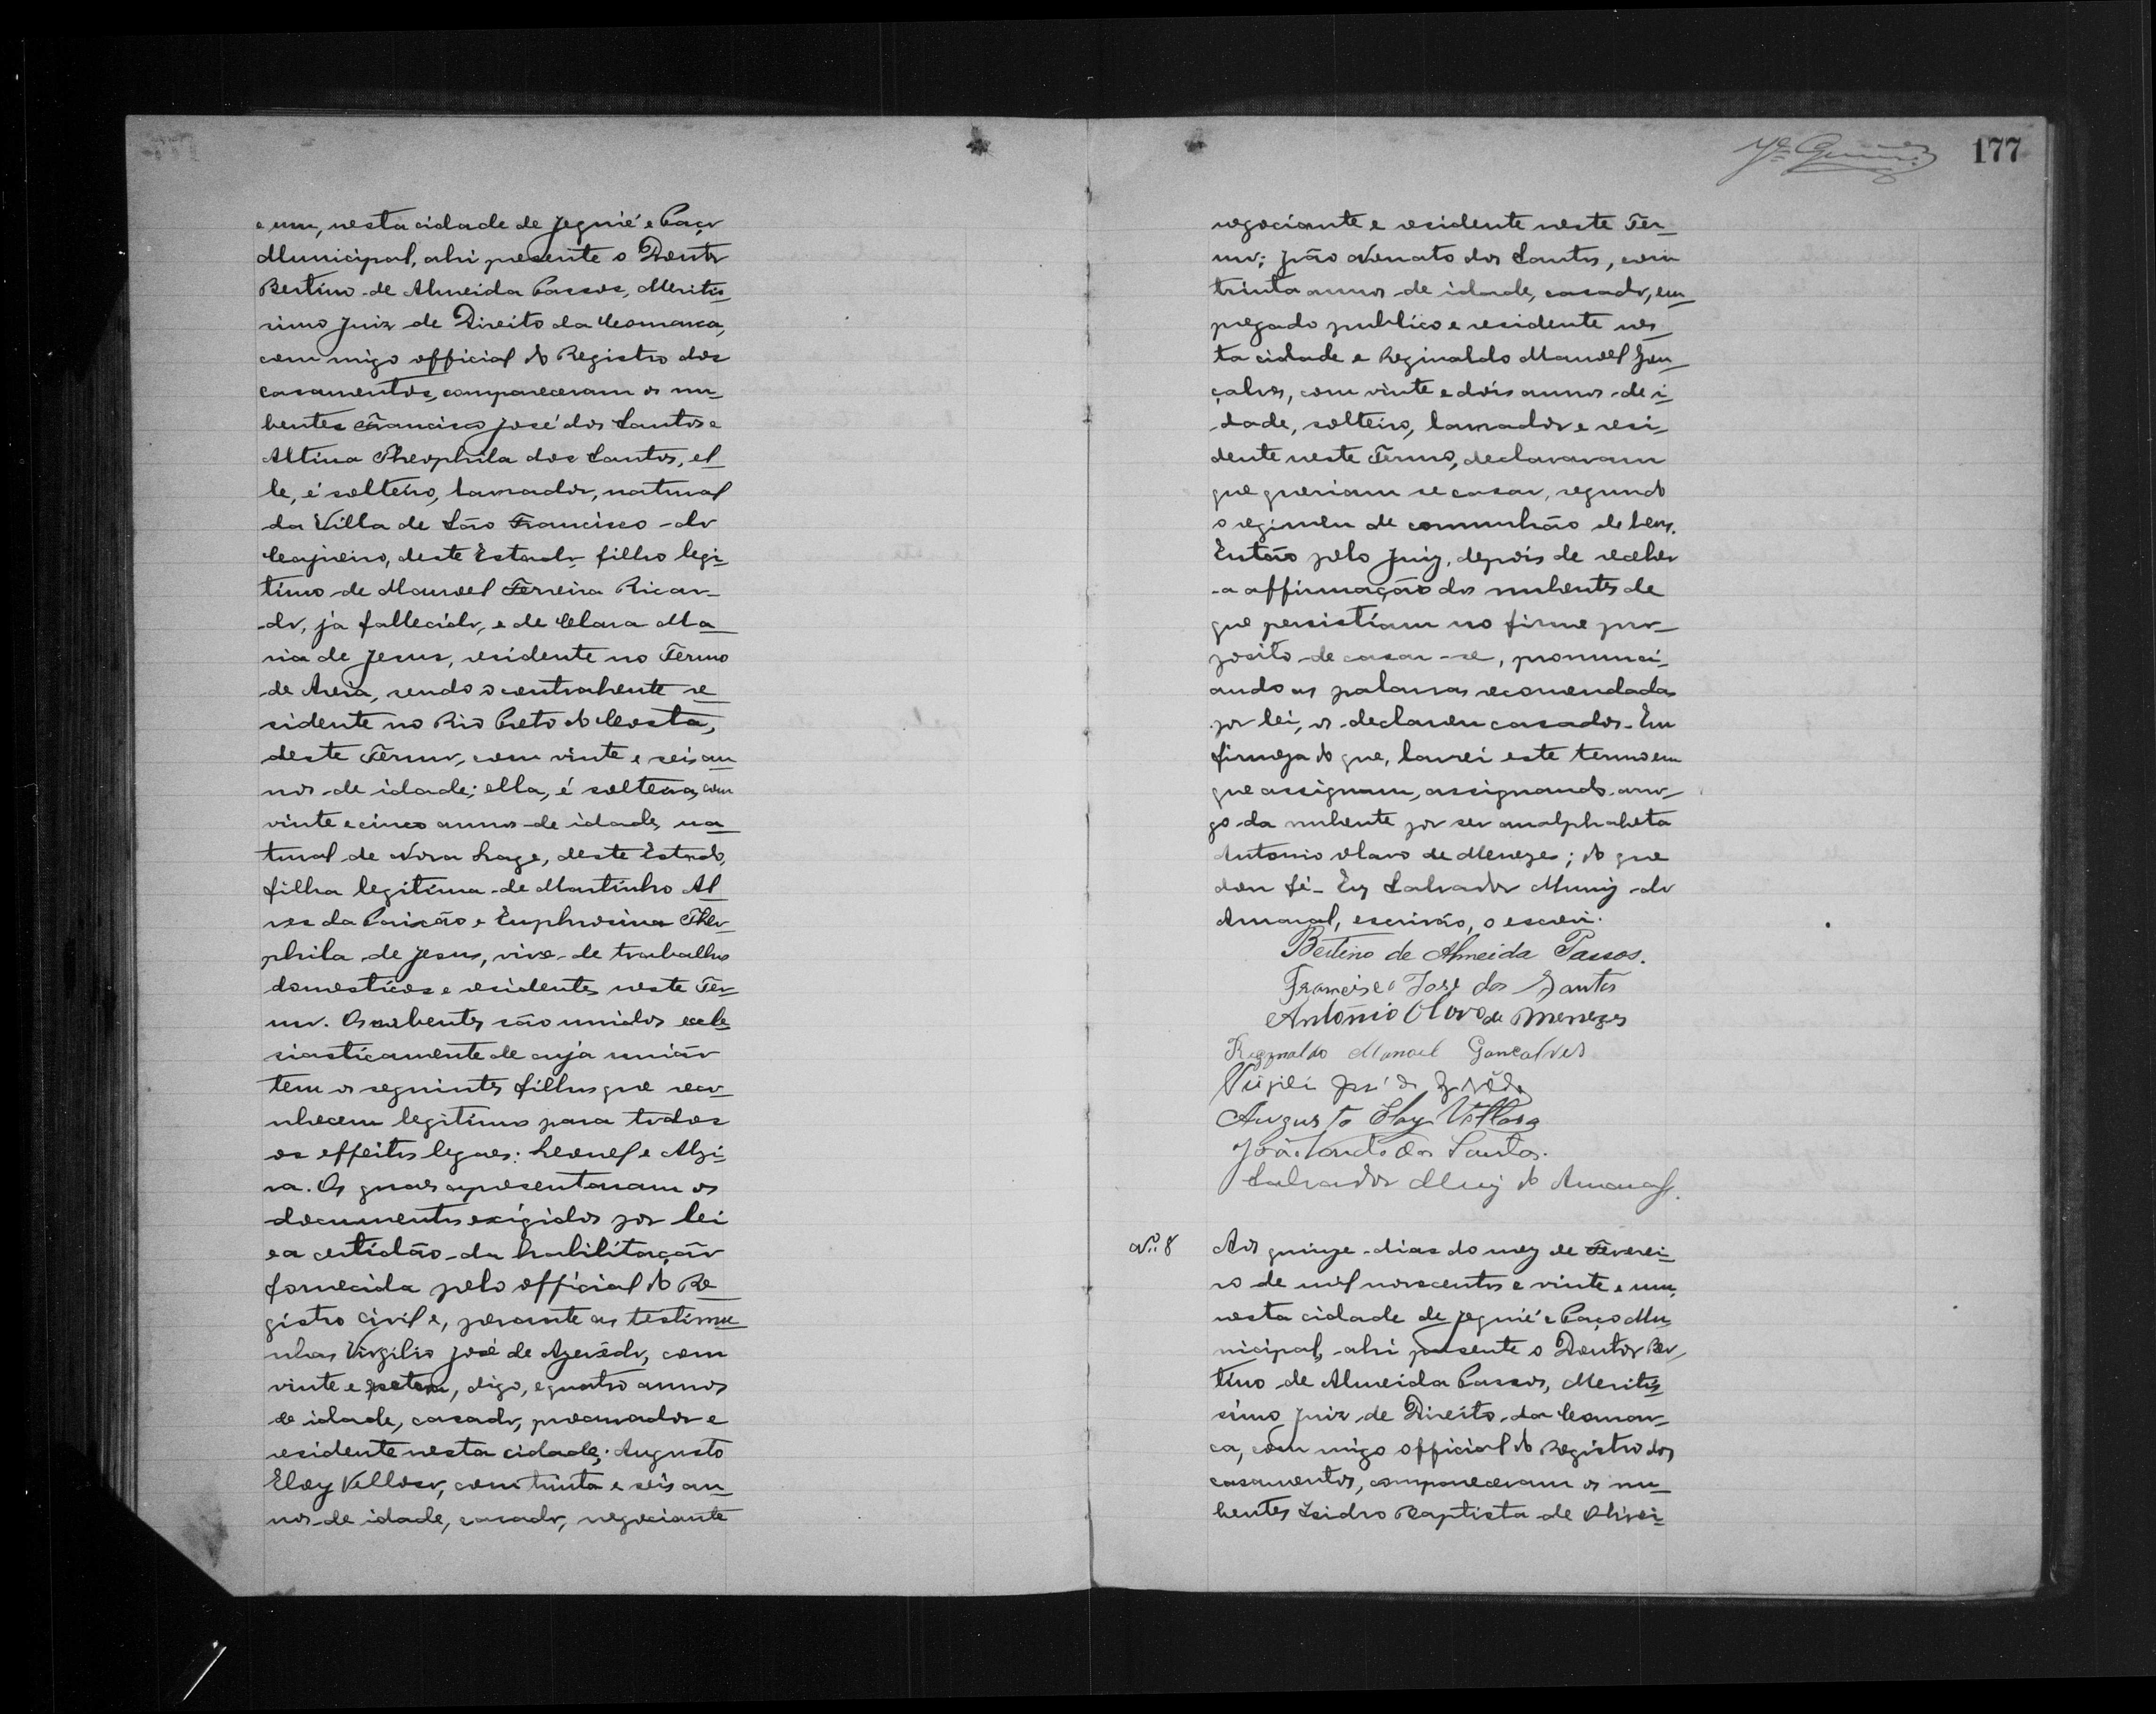 e um, nesta cidade de Jequié e Paço
Municipal, ahi presente o Doutor
Bertino de Almeida Passos, Meritis
simo Juiz de Direito da Comarca,
commigo official do Registro dos
casamentos, compareceram os nu-
bentes Francisco José dos Santos e
Altina Theophila dos Santos, el
le, é solteiro, lavrador, natural
da Villa de São Francisco do
Cajueiro, deste Estado, filho legi-
timo de Manoel Ferreira Ricar-
do, já fallecido, e de Clara Ma
ria de Jesus, residente no Termo
de Areia, sendo o contrahente re
sidente no Rio Preto do Costa,
deste Termo, com vinte e seis an
nos de idade; ella, é solteira, com
vinte e cinco annos de idade, na
tural de Nova Lage, deste Estado,
filha legitima de Martinho Al
ves da Paixão e Euphrosina Theo-
phila de Jesus, vive de trabalhos
domesticos e residentes neste Ter-
mo. Os nubentes são unidos eccle
siasticamente de cuja união
tem os seguintes filhos que reco-
nhecem legitimos para todos
os effeitos legaes: Leonel e Alzi-
ra. Os quaes apresentaram os
documentos exigidos por lei
e a certidão da habilitação
fornecida pelo official do Re
gistro Civil e, perante as testimu
nhas Virgilio José de Azevêdo, com
vinte e digo, e quatro annos
de idade, casado, procurador e
residente nesta cidade; Augusto
Eloy Velloso, com trinta e seis an-
nos de idade, casado, negociante
177
negociante e residente neste Ter-
mo; João Nonato dos Santos, com
trinta annos de idade, casado, em-
pregado publico e residente nes-
ta cidade e Reginaldo Manoel Gon-
çalves, com vinte e dois annos de i-
dade, solteiro, lavrador e resi-
dente neste Termo, declararam
que queriam se casar, segundo
o regimen de communhão de bens.
Então pelo Juiz, depois de receber
a affirmação dos nubentes de
que persistiam no firme pro-
posito de casar-se, pronunci-
ando as palavras recomendadas
por lei, os declarou casados. Em
firmeza do que, lavrei este termo em
que assignam, assignando a ro-
go da nubente por ser analphabeta
Antonio Olavo de Menezes; do que
dou fé. Eu Salvador Muniz do
Amaral, escrivão, o escrevi.
Bertino de Almeida Passos.
Francisco José dos Santos
Antônio Olavo de Menezes
Reginaldo Manoel Gonçalves
Virgilio José de Azevêdo
Augusto Eloy Velloso
João Nonato dos Santos.
Salvador Muniz do Amaral.
N.: 8
Aos quinze dias do mez de Feverei-
ro de mil novecentos e vinte e um,
nesta cidade de Jequié e Paço Mu
nicipal, ahi presente o Doutor Ber-
tino de Almeida Passos, Meritis
simo Juiz de Direito da Comar-
ca, commigo official do Registro dos
casamentos, compareceram os nu-
bentes Isidro Baptista de Olivei-